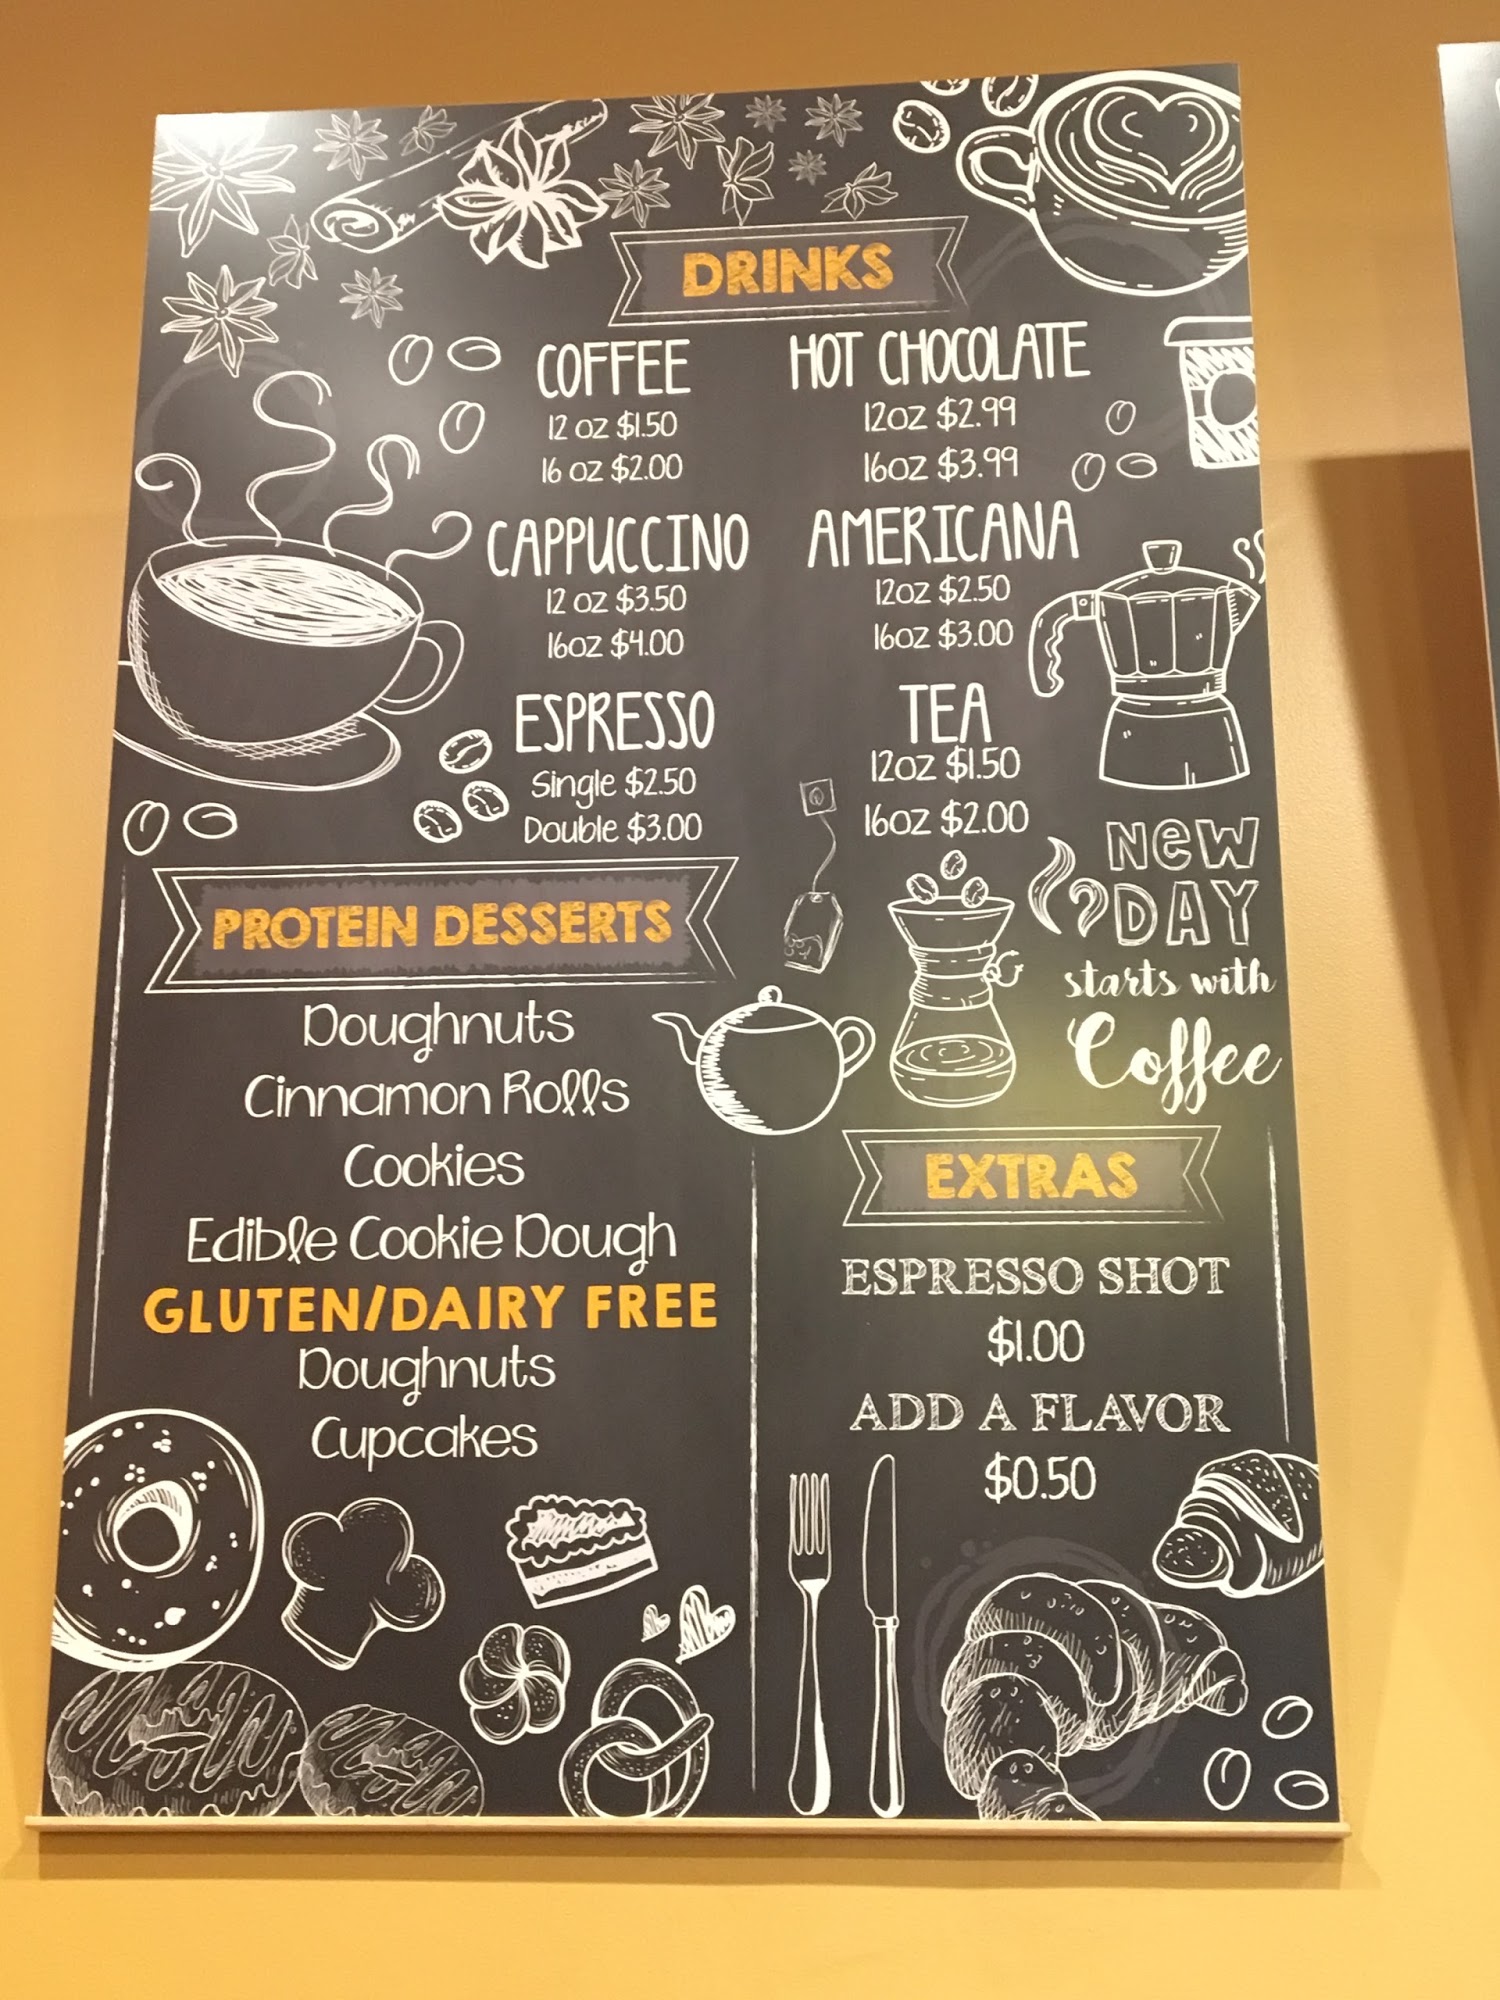 DRINKS
COFFEE
12 oz $1.50
16 oz $2.00
HOT CHOCOLATE
12oz $2.99
16oz $3.99
CAPPUCCINO
12 oz $3.50
16oz $4.00
AMERICANA
12oz $2.50
16oz $3.00
ESPRESSO
Single $2.50
Double $3.00
TEA
12oz $1.50
16oz $2.00
NeW
DAY
starts with
Coffee
PROTEIN DESSERTS
Doughnuts
Cinnamon Rolls
Cookies
Edible Cookie Dough
GLUTEN/DAIRY FREE
Doughnuts
Cupcakes
EXTRAS
ESPRESSO SHOT
$1.00
ADD A FLAVOR
$0.50